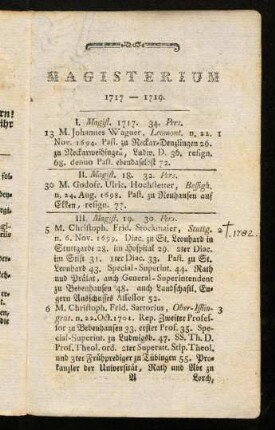 MAGISTERIUM
1717 — 1719.
I. Magist. 1717. 34. Pers.
13 M. Johannes Wagner, Leomont. n. 22. 1
Nov. 1694. Past. zu Neckar-Denzlingen 26.
zu Neckarweihingen, Ludw. D. 36, resign.
68. denuo Past. ebendaselbst 72.
II. Magist. 18. 32. Pers.
30 M. Godofr. Ulric. Hochstetter, Besigh.
n. 24. Aug. 1698. Past. zu Neuhausen auf
Ekken, resign. 77.
III. Magist. 19. 30. Pers.
5 M. Christoph. Frid. Stockmaier, Stuttg. 2
†.1782.
n. 6. Nov. 1699. Diac. zu St. Leonhard in
Stuttgardt 28. im Hospital 29. 2ter Diac.
im Stift 31. 1ter Diac. 33. Past. zu St.
Leonhard 43. Special-Superint. 44. Rath
und Prälat, auch General-Superintendent
zu Bebenhausen 48. auch Landschaftl. En-
gern Ausschusses Assessor 52.
6 M. Christoph. Frid. Sartorius, Ober-Issin- 3
gens. n. 22. Oct. 1701. Rep. Zweiter Profes-
sor zu Bebenhausen 33. erster Prof. 35. Spe-
cial-Superint. zu Ludwigsb. 47. SS. Th. D.
Prof. Theol. ord. 2ter Superatt. Stip. Theol.
und 3ter Frühprediger zu Tübingen 55. Pro-
kanzler der Universität, Rath und Abt zu
A Lorch,